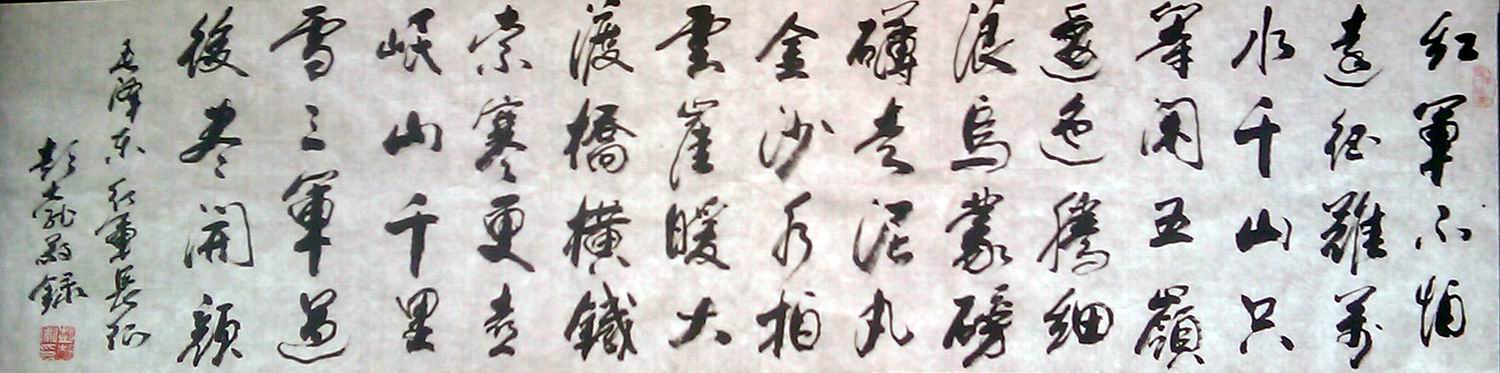 紅軍不怕
遠征難萬
水千山只
等閑五嶺
逶迤騰細
浪烏蒙磅
礴走泥丸
金沙水拍
雲崖暖大
渡橋橫鐵
索寒更喜
岷山千里
雪三軍過
後盡開顏
毛澤東紅軍長征
彭錄